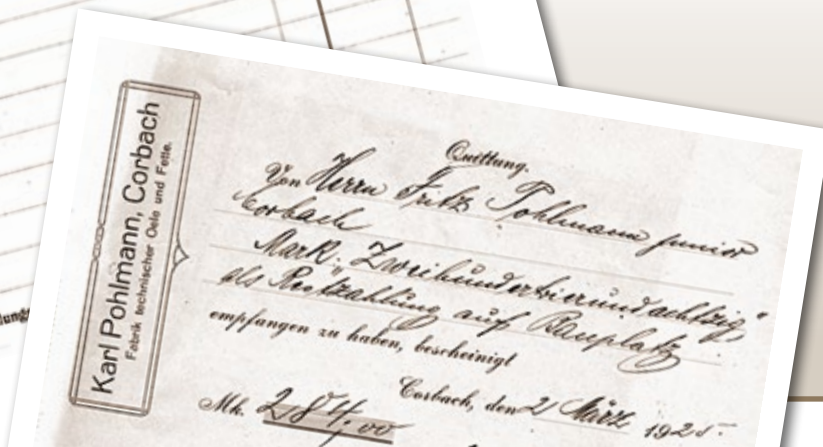 Karl Pohlmann, Corbach
Fabrik technischer Oele und Fette.
Quittung.
Von Herrn Fritz Pohlmann junior
Corbach
Mark: „Zweihundertvierundachtzig"
als Restzahlung auf Bauplatz
empfangen zu haben, bescheinigt
Corbach, den 2 März 1925.
Mk. 284.00